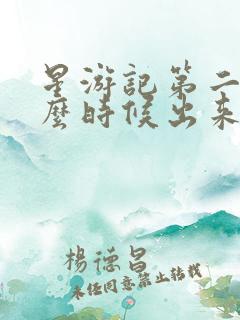 星游記第二
麼時候出來
楊德昌
未经同意禁止转载